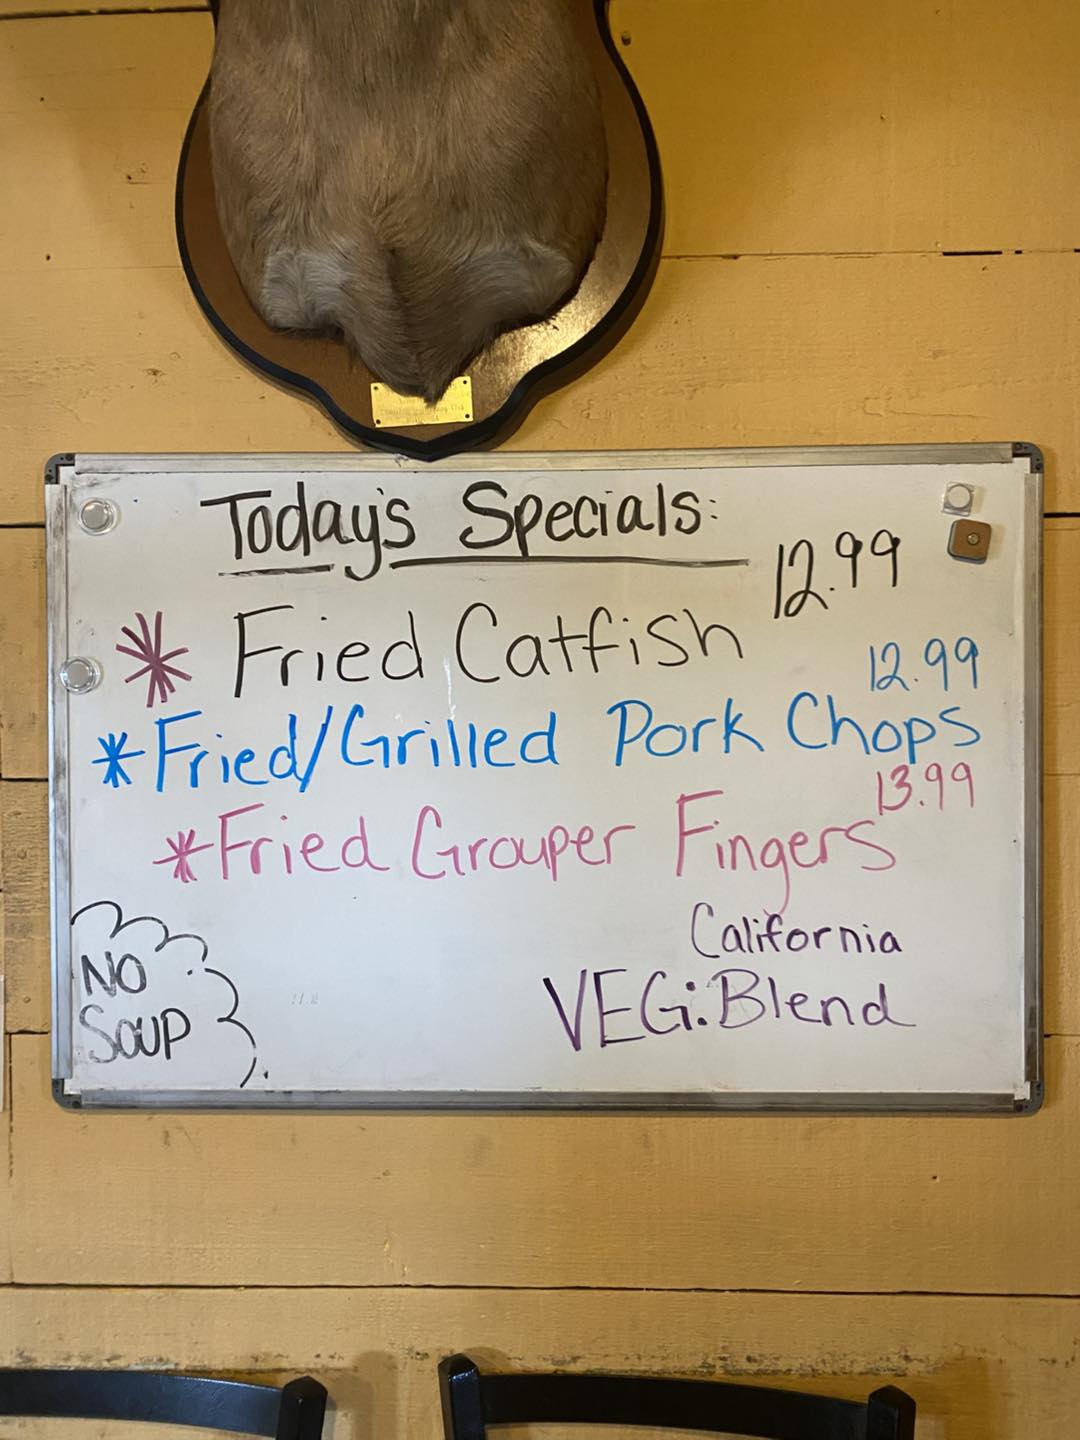 Today's Specials:
12.99
* Fried Catfish
12.99
*Fried/Grilled Pork Chops
13.99
*Fried Grouper Fingers
California
VEG: Blend
NO
Soup